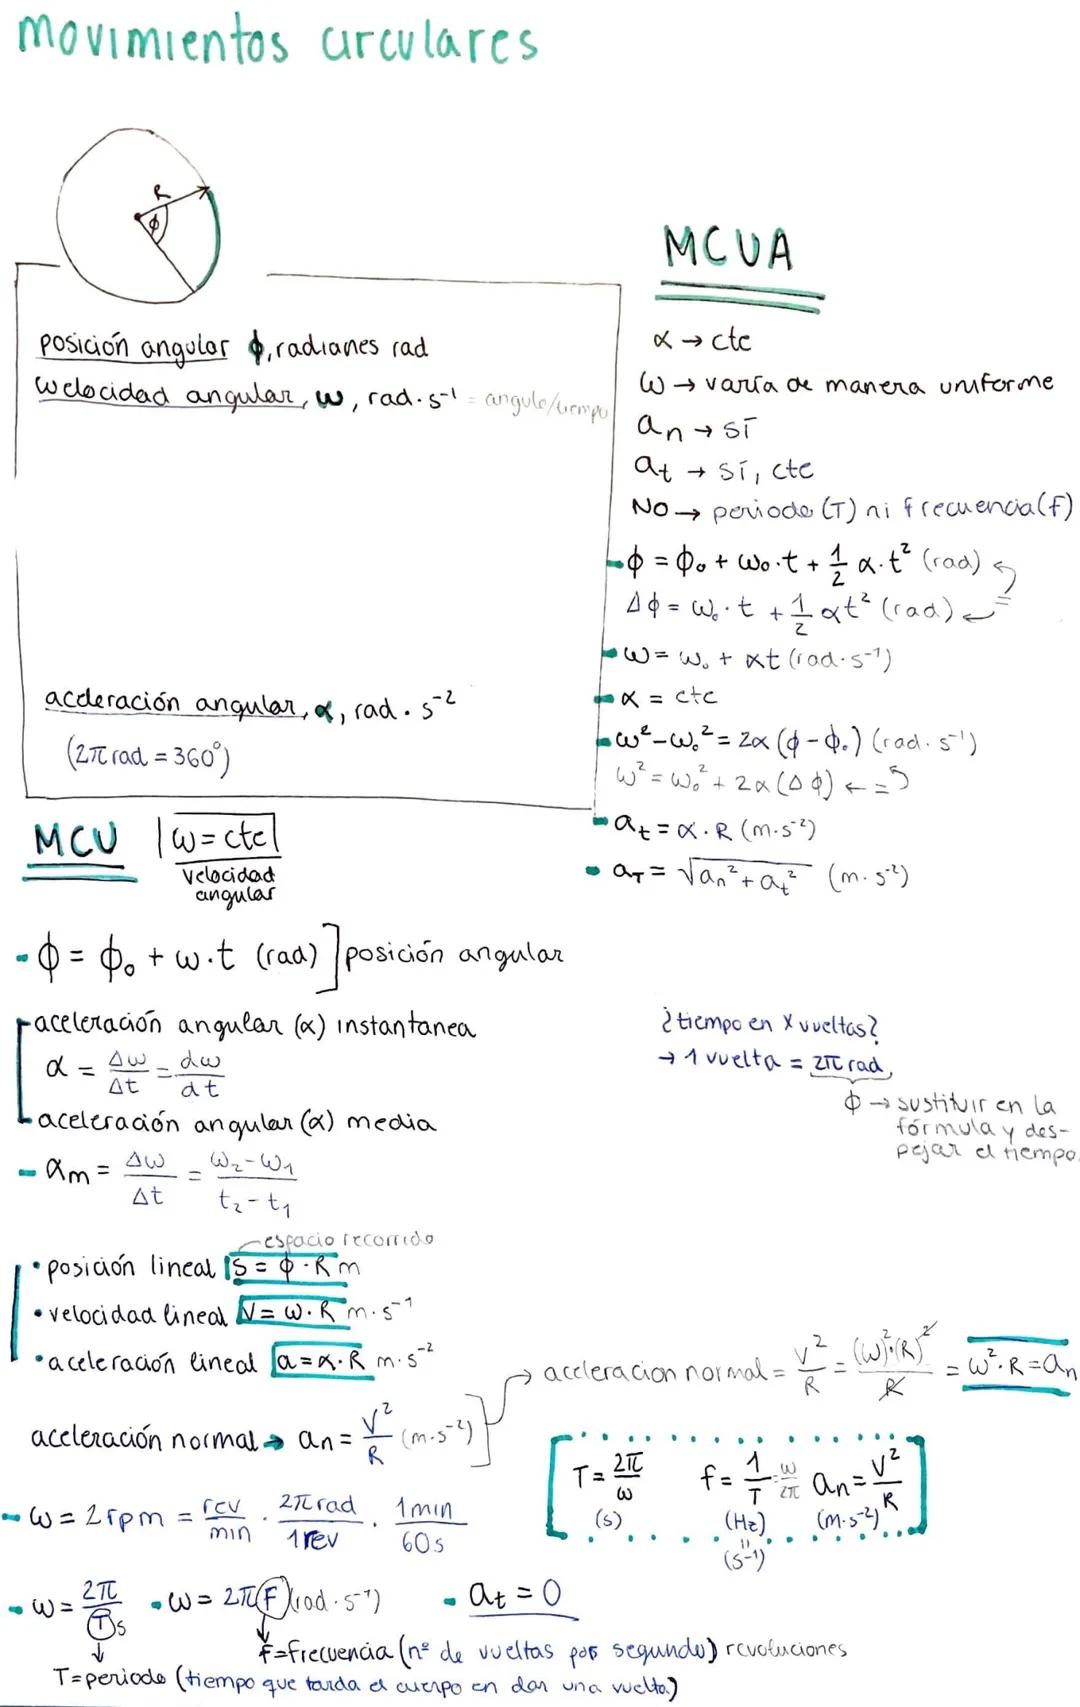 movimientos circulares
R
ϕ
posición angular ϕ, radianes rad
Welocidad angular, ω, rad·s⁻¹ = angulo/tiempo
aceleración angular, α, rad·s⁻²
(2π rad = 360°)
MCUA
α → cte
ω → varía de manera uniforme
an → sí
at → sí, cte
NO → periodo (T) ni frecuencia (f)
- ϕ = ϕ₀ + ω₀·t + 1/2 α·t² (rad)
Δϕ = ω₀·t + 1/2 αt² (rad) ← =
- ω = ω₀ + αt (rad·s⁻¹)
- α = cte
- ω² - ω₀² = 2α (ϕ - ϕ₀) (rad·s⁻¹)
ω² = ω₀² + 2α (Δϕ) ← =
- at = α·R (m·s⁻²)
- aT = √an² + at² (m·s⁻²)
MCU |ω = cte|
velocidad
angular
- ϕ = ϕ₀ + ω·t (rad) ] posición angular
aceleración angular (α) instantanea
α = Δω/Δt = dω/dt
aceleración angular (α) media
- αm = Δω/Δt = ω₂-ω₁/t₂-t₁
¿tiempo en X vueltas?
→ 1 vuelta = 2π rad
ϕ → sustituir en la
fórmula y des-
pejar el tiempo.
espacio recorrido
• posición lineal S = ϕ·R m
• velocidad lineal V = ω·R m·s⁻¹
• aceleración lineal a = α·R m·s⁻²
aceleración normal → an = V²/R (m·s⁻²)
→ aceleracion normal = V²/R = (ω)²·(R)²/R = ω²·R = an
T = 2π/ω f = 1/T = ω/2π an = V²/R
(s) (Hz) (m·s⁻²)
=
(s⁻¹)
- ω = 2 rpm = rev/min · 2π rad/1 rev · 1 min/60 s
- ω = 2π/T s - ω = 2π F (rad·s⁻¹) - at = 0
f = frecuencia (nº de vueltas por segundo) revoluciones
T = periodo (tiempo que tarda el cuerpo en dar una vuelta)